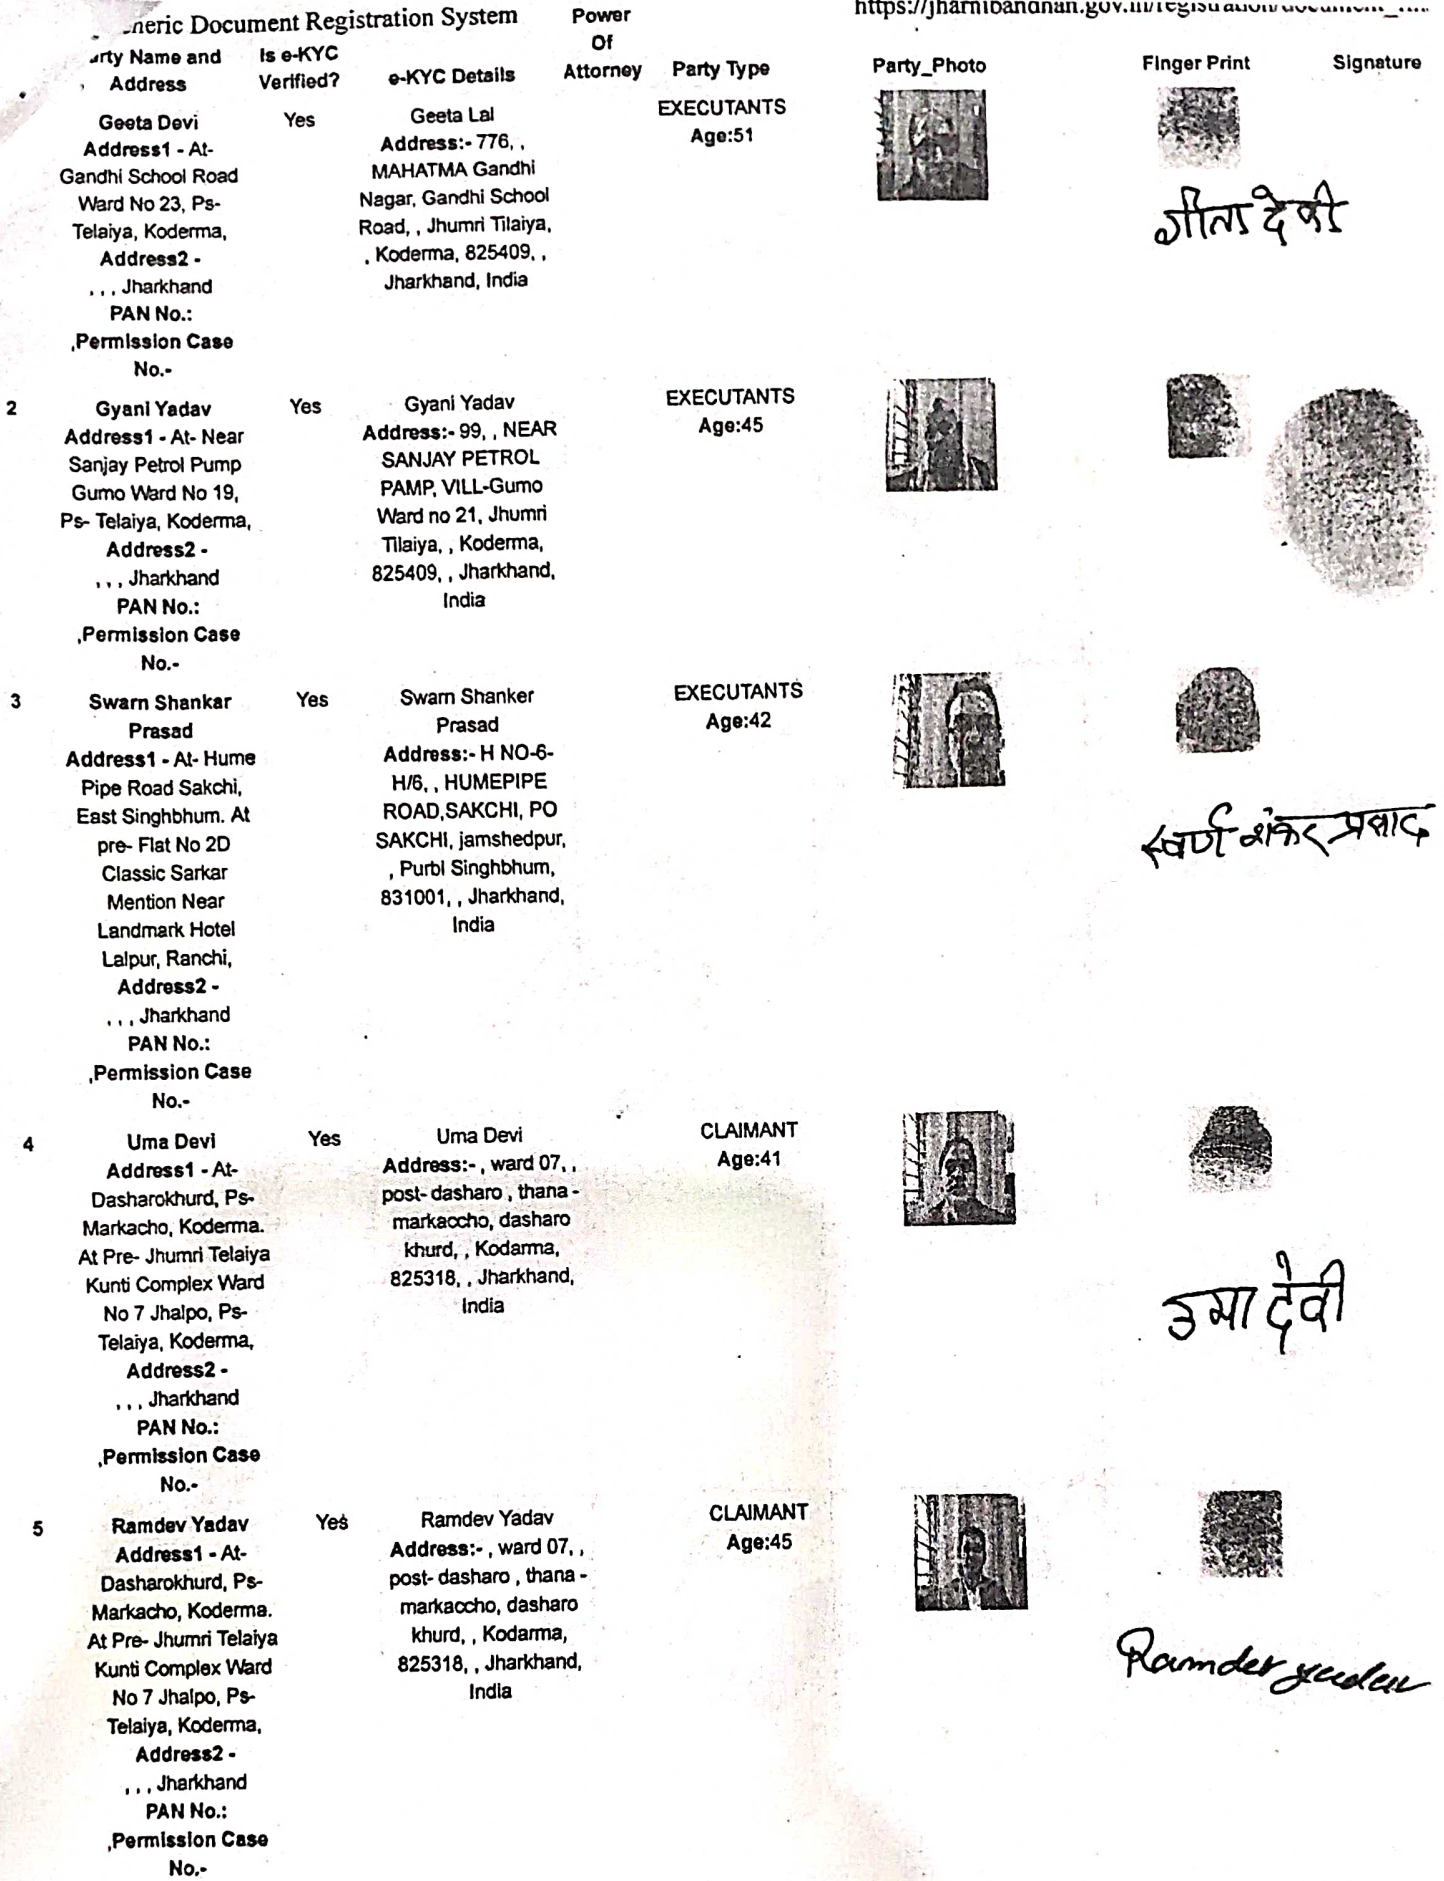 neric Document Registration System
https://jharnibandhan.gov.in/registration/document_
arty Name and Address
Is e-KYC Verified?
e-KYC Details
Power Of Attorney
Party Type
Party_Photo
Finger Print
Signature
Geeta Devi
Address1 - At-
Gandhi School Road
Ward No 23, Ps-
Telaiya, Koderma,
Address2 -
, , , Jharkhand
PAN No.:
,Permission Case
No.-
Yes
Geeta Lal
Address:- 776, ,
MAHATMA Gandhi
Nagar, Gandhi School
Road, , Jhumri Tilaiya,
, Koderma, 825409, ,
Jharkhand, India
EXECUTANTS
Age:51
गीता देवी
2
Gyani Yadav
Address1 - At- Near
Sanjay Petrol Pump
Gumo Ward No 19,
Ps- Telaiya, Koderma,
Address2 -
, , , Jharkhand
PAN No.:
,Permission Case
No.-
Yes
Gyani Yadav
Address:- 99, , NEAR
SANJAY PETROL
PAMP, VILL-Gumo
Ward no 21, Jhumri
Tilaiya, , Koderma,
825409, , Jharkhand,
India
EXECUTANTS
Age:45
3
Swarn Shankar
Prasad
Address1 - At- Hume
Pipe Road Sakchi,
East Singhbhum. At
pre- Flat No 2D
Classic Sarkar
Mention Near
Landmark Hotel
Lalpur, Ranchi,
Address2 -
, , , Jharkhand
PAN No.:
,Permission Case
No.-
Yes
Swarn Shanker
Prasad
Address:- H NO-6-
H/6, , HUMEPIPE
ROAD,SAKCHI, PO
SAKCHI, jamshedpur,
, Purbi Singhbhum,
831001, , Jharkhand,
India
EXECUTANTS
Age:42
स्वर्ण शंकर प्रसाद
4
Uma Devi
Address1 - At-
Dasharokhurd, Ps-
Markacho, Koderma.
At Pre- Jhumri Telaiya
Kunti Complex Ward
No 7 Jhalpo, Ps-
Telaiya, Koderma,
Address2 -
, , , Jharkhand
PAN No.:
,Permission Case
No.-
Yes
Uma Devi
Address:- , ward 07, ,
post- dasharo , thana -
markaccho, dasharo
khurd, , Kodarma,
825318, , Jharkhand,
India
CLAIMANT
Age:41
उमा देवी
5
Ramdev Yadav
Address1 - At-
Dasharokhurd, Ps-
Markacho, Koderma.
At Pre- Jhumri Telaiya
Kunti Complex Ward
No 7 Jhalpo, Ps-
Telaiya, Koderma,
Address2 -
, , , Jharkhand
PAN No.:
,Permission Case
No.-
Yes
Ramdev Yadav
Address:- , ward 07, ,
post- dasharo , thana -
markaccho, dasharo
khurd, , Kodarma,
825318, , Jharkhand,
India
CLAIMANT
Age:45
Ramdev yadav